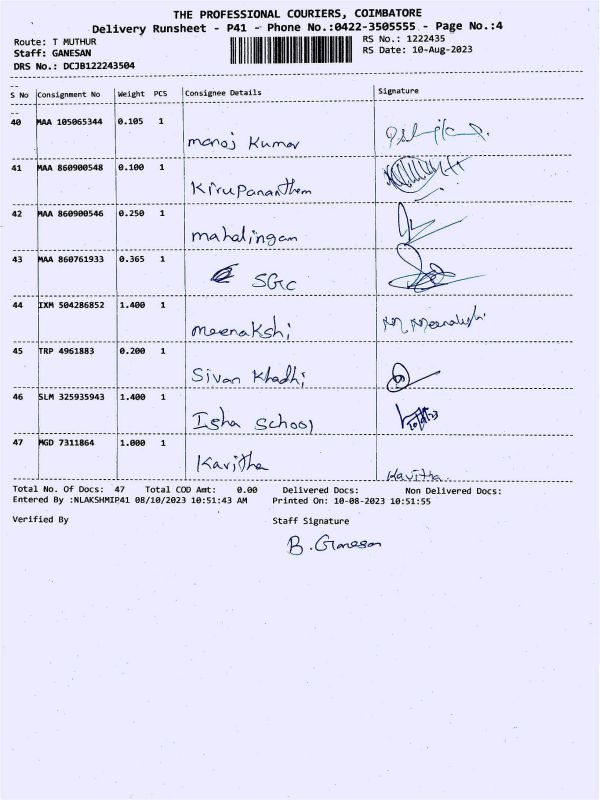 THE PROFESSIONAL COURIERS, COIMBATORE
Delivery Runsheet - P41 - Phone No.:0422-3505555 - Page No.:4
Route: T MUTHUR RS No.: 1222435
Staff: GANESAN RS Date: 10-Aug-2023
DRS No.: DCJB122243504
S No Consignment No Weight PCS Consignee Details Signature
40 MAA 105065344 0.105 1
manoj Kumar
41 MAA 860900548 0.100 1
Kirupananthem
42 MAA 860900546 0.250 1
mahalingam
43 MAA 860761933 0.365 1
SGC
44 IXM 504286852 1.400 1
meenakshi M Meenakshi
45 TRP 4961883 0.200 1
Sivan Khadhi
46 SLM 325935943 1.400 1
Isha School 10/8/23
47 MGD 7311864 1.000 1
Kavitha Kavitha
Total No. Of Docs: 47 Total COD Amt: 0.00 Delivered Docs: Non Delivered Docs:
Entered By :NLAKSHMIP41 08/10/2023 10:51:43 AM Printed On: 10-08-2023 10:51:55
Verified By Staff Signature
B. Ganesan